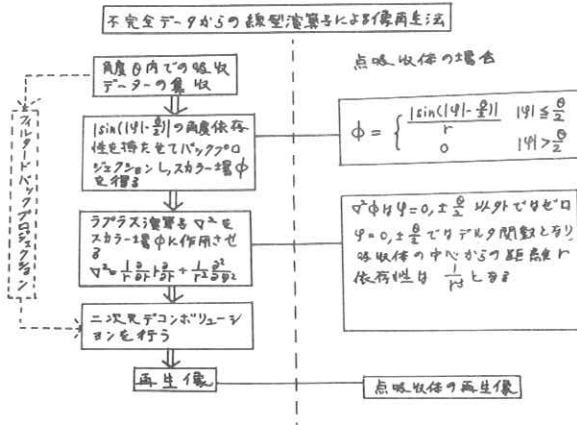 不完全データからの線型演算子による像再生法
角度θ内での吸収
データーの集収
|sin(|φ|-θ/2)|の角度依存
性を持たせてバックプロ
ジェクションし、スカラー場φ
を得る
ラプラス演算子∇²を
スカラー場φに作用させ
る
∇²=1/r ∂/∂r r ∂/∂r + 1/r² ∂²/∂θ²
二次元デコンボリューシ
ョンを行う
再生像
フィルタードバックプロジェクション
点吸収体の場合
ϕ = { |sin(|φ|-θ/2)|/r |φ|≦θ/2
0 |φ|>θ/2
∇²φはφ=0,±θ/2 以外ではゼロ
φ=0,±θ/2 ではデルタ関数となり
吸収体の中心からの距離r
依存性は 1/r³ となる
点吸収体の再生像